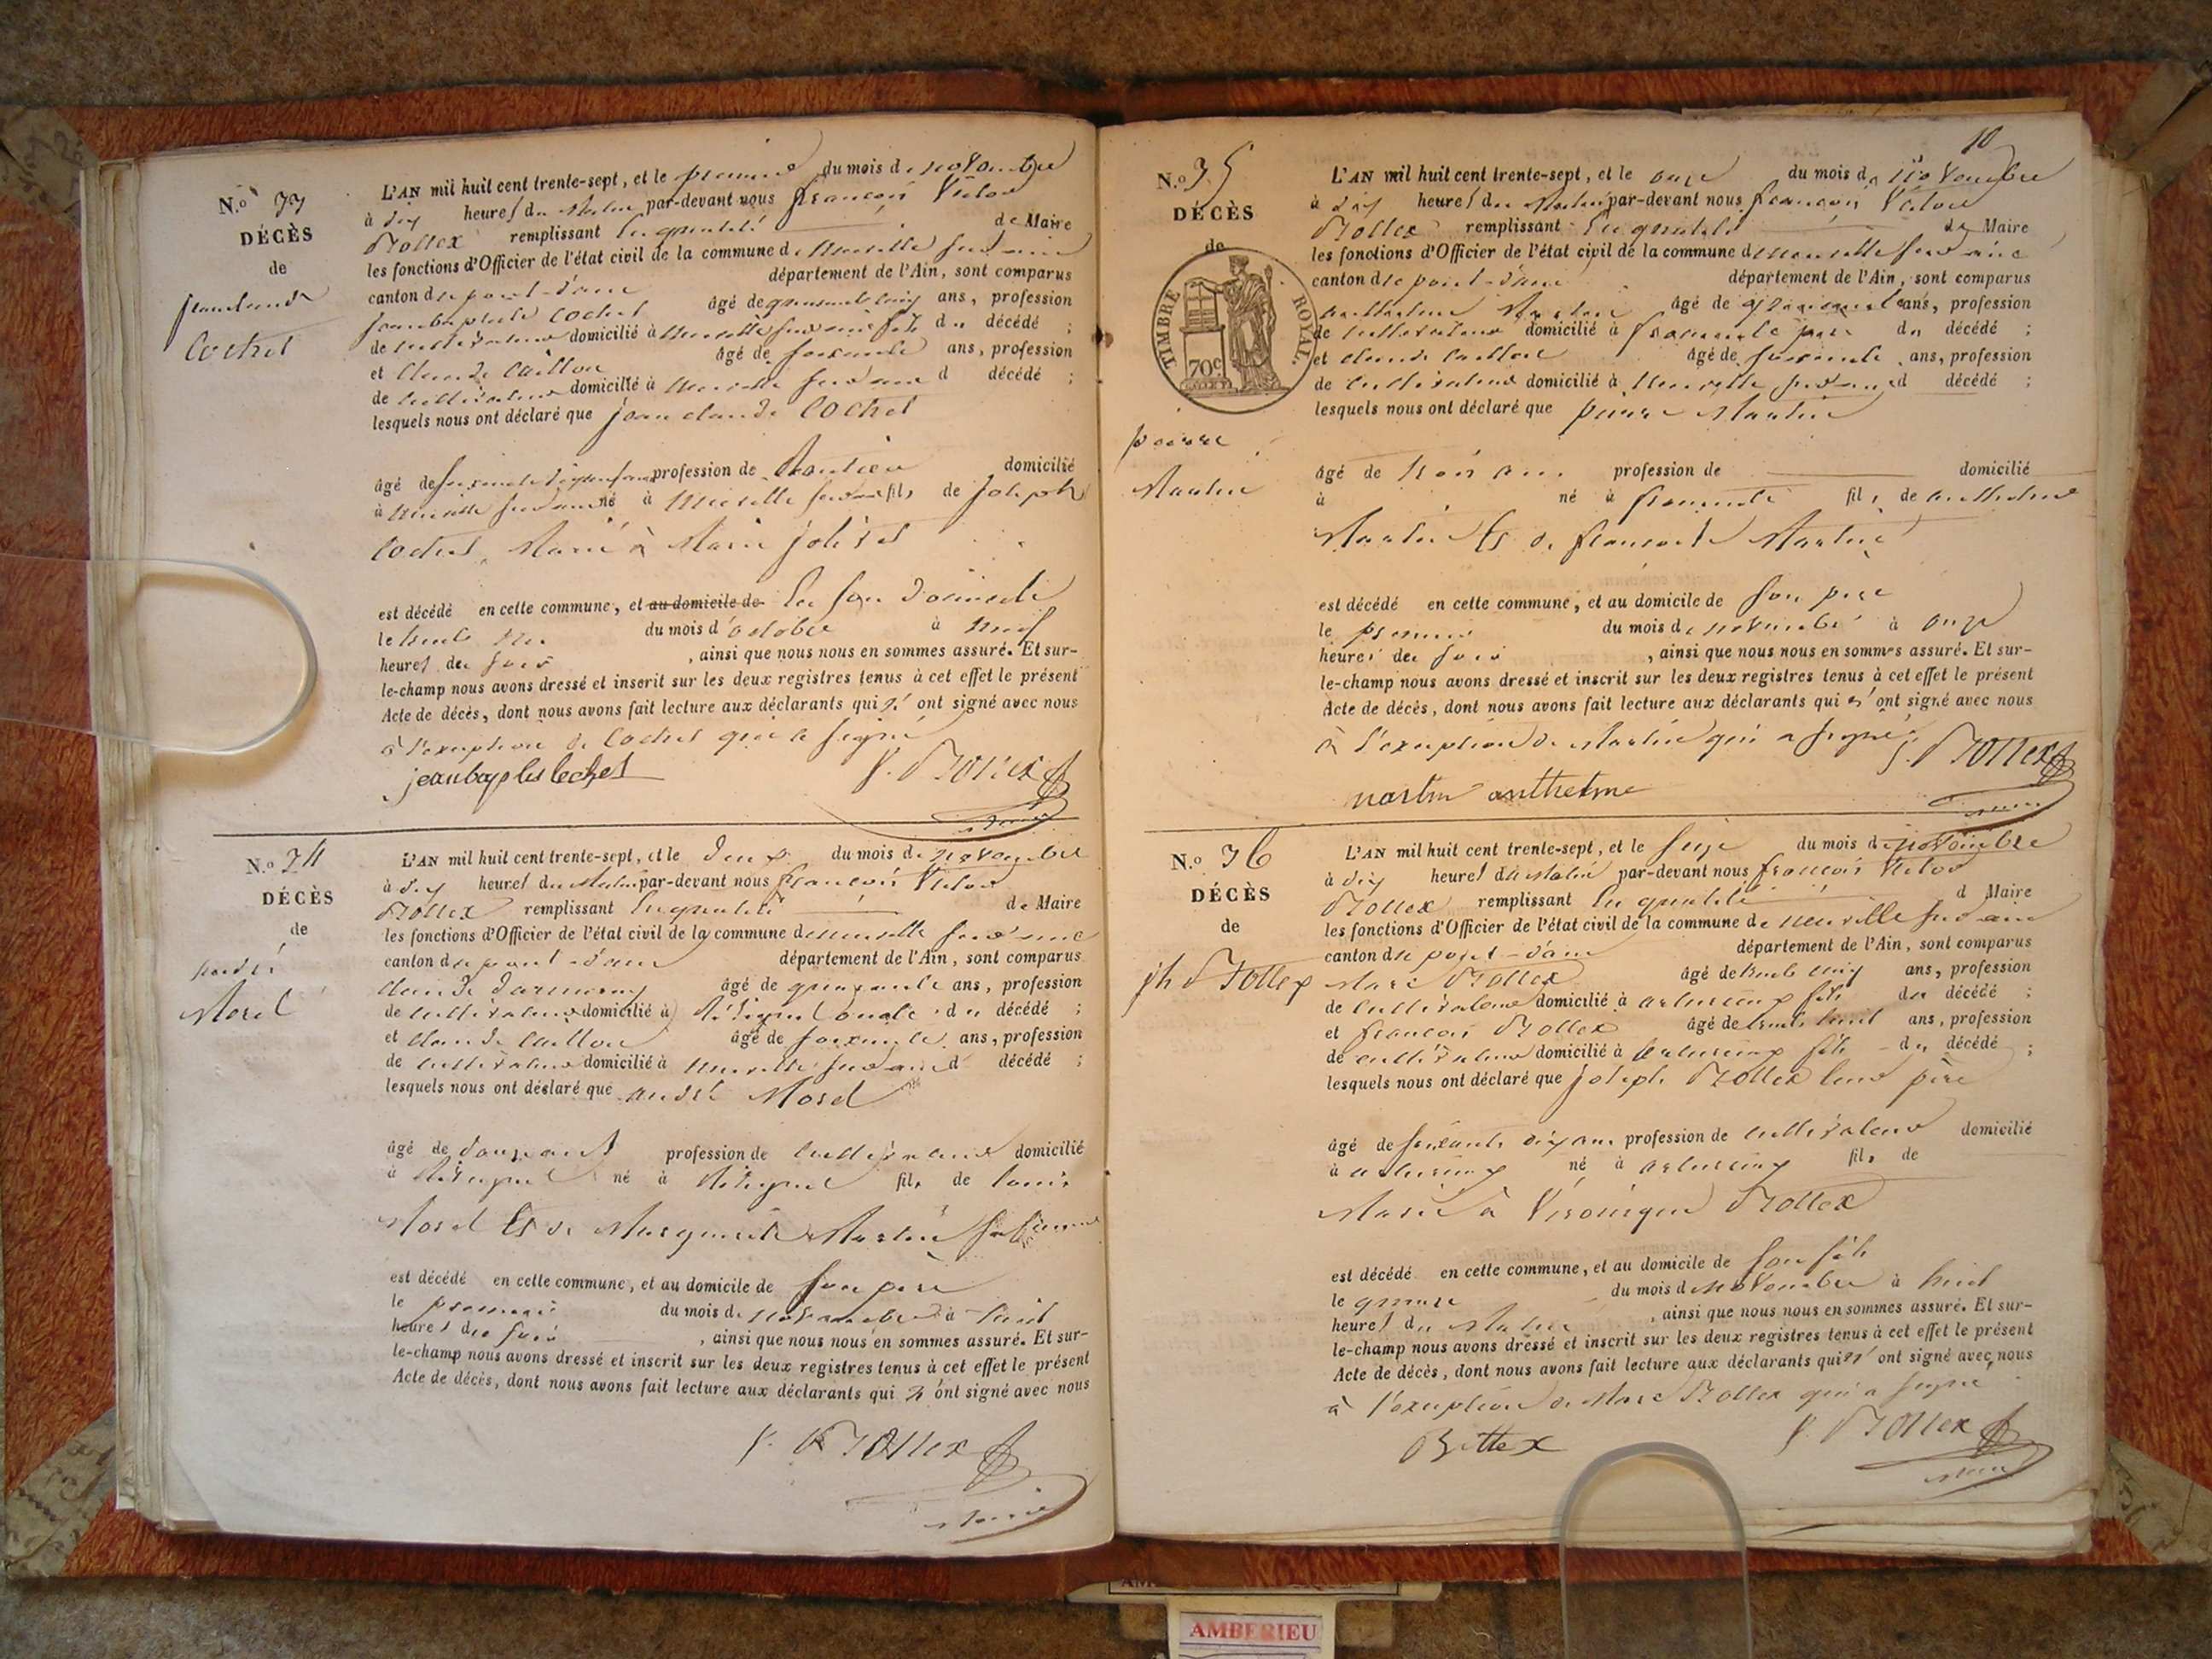 N.o 33
DÉCÈS
de
jean claude
Cochet
L'AN mil huit cent trente-sept, et le premier du mois de novembre
à dix heures du Matin par-devant nous françois Victor
Bollex remplissant en qualité de Maire
les fonctions d'Officier de l'état civil de la commune de Neuville sur ain
canton de pont-d'ain département de l'Ain, sont comparus
jean baptiste Cochet âgé de quarante cinq ans, profession
de cultivateur domicilié à Neuville sur ain fils du décédé ;
et Claude Caillou âgé de soixante ans, profession
de cultivateur domicilié à Neuville sur ain d décédé ;
lesquels nous ont déclaré que jean claude Cochet
âgé de soixante ans profession de domicilié
à Neuville sur ain né à Neuville sur ain fils de Joseph
Cochet, Marié à Marie
est décédé en cette commune, et au domicile de En son domicile
le trente un du mois d'octobre à neuf
heures du soir , ainsi que nous nous en sommes assuré. Et sur-
le-champ nous avons dressé et inscrit sur les deux registres tenus à cet effet le présent
Acte de décès, dont nous avons fait lecture aux déclarants qui n'ont signé avec nous
à l'exception de Cochet qui a signé
jean baptiste cochet V. Bollex
maire
N.o 34
DÉCÈS
de
andré
Morel
L'AN mil huit cent trente-sept, et le deux du mois de novembre
à dix heures du Matin par-devant nous françois Victor
Bollex remplissant En qualité de Maire
les fonctions d'Officier de l'état civil de la commune de neuville sur ain
canton de pont-d'ain département de l'Ain, sont comparus
claude âgé de quarante ans, profession
de cultivateur domicilié à du décédé ;
et claude Caillou âgé de soixante ans, profession
de cultivateur domicilié à Neuville sur ain d décédé ;
lesquels nous ont déclaré que andré Morel
âgé de douze ans profession de cultivateur domicilié
à né à fils de louis
Morel Et de Marguerite Martin
est décédé en cette commune, et au domicile de son père
le premier du mois de novembre à huit
heures du soir , ainsi que nous nous en sommes assuré. Et sur-
le-champ nous avons dressé et inscrit sur les deux registres tenus à cet effet le présent
Acte de décès, dont nous avons fait lecture aux déclarants qui n'ont signé avec nous
V. Bollex
maire
10
N.o 35
DÉCÈS
de
TIMBRE ROYAL.
70c
pierre
Martin
L'AN mil huit cent trente-sept, et le onze du mois de Novembre
à dix heures du Matin par-devant nous françois Victor
Bollex remplissant En qualité de Maire
les fonctions d'Officier de l'état civil de la commune de neuville sur ain
canton de pont-d'ain département de l'Ain, sont comparus
anthelme Martin âgé de ans, profession
de cultivateur domicilié à fromente père du décédé ;
et claude Caillou âgé de soixante ans, profession
de cultivateur domicilié à Neuville sur ain d décédé ;
lesquels nous ont déclaré que pierre Martin
âgé de trois ans profession de domicilié
à né à fromente fils de anthelme
Martin Et de françoise Martin
est décédé en cette commune, et au domicile de son père
le premier du mois de novembre à onze
heures du soir , ainsi que nous nous en sommes assuré. Et sur-
le-champ nous avons dressé et inscrit sur les deux registres tenus à cet effet le présent
Acte de décès, dont nous avons fait lecture aux déclarants qui n'ont signé avec nous
à l'exception de Martin qui a signé V. Bollex
martin anthelme maire
N.o 36
DÉCÈS
de
jh Bollex
L'AN mil huit cent trente-sept, et le seize du mois de novembre
à dix heures du Matin par-devant nous françois Victor
Bollex remplissant En qualité d Maire
les fonctions d'Officier de l'état civil de la commune de neuville sur ain
canton de pont-d'ain département de l'Ain, sont comparus
Marc Bollex âgé de trente cinq ans, profession
de cultivateur domicilié à fils du décédé ;
et françois Bollex âgé de trente huit ans, profession
de cultivateur domicilié à fils du décédé ;
lesquels nous ont déclaré que joseph Bollex leur père
âgé de soixante dix ans profession de cultivateur domicilié
à né à fils de
Marié à Véronique Bollex
est décédé en cette commune, et au domicile de son fils
le quinze du mois de Novembre à huit
heures du Matin , ainsi que nous nous en sommes assuré. Et sur-
le-champ nous avons dressé et inscrit sur les deux registres tenus à cet effet le présent
Acte de décès, dont nous avons fait lecture aux déclarants qui n'ont signé avec nous
à l'exception de Marc Bollex qui a signé
Bollex V. Bollex
maire
AMBERIEU